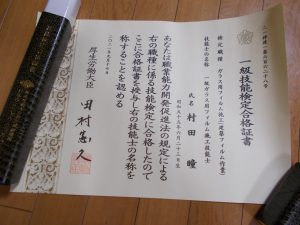 一級技能検定合格証書
検定職種 ガラス用フィルム施工(建築フィルム作業)
技能士の名称 一級ガラス用フィルム施工技能士
氏名 村田 瞳
あなたは職業能力開発促進法の規定による
右の職種に係る技能検定に合格したので
ここに合格証書を授与し右の技能士の名称を
称することを認める
厚生労働大臣
田村憲久